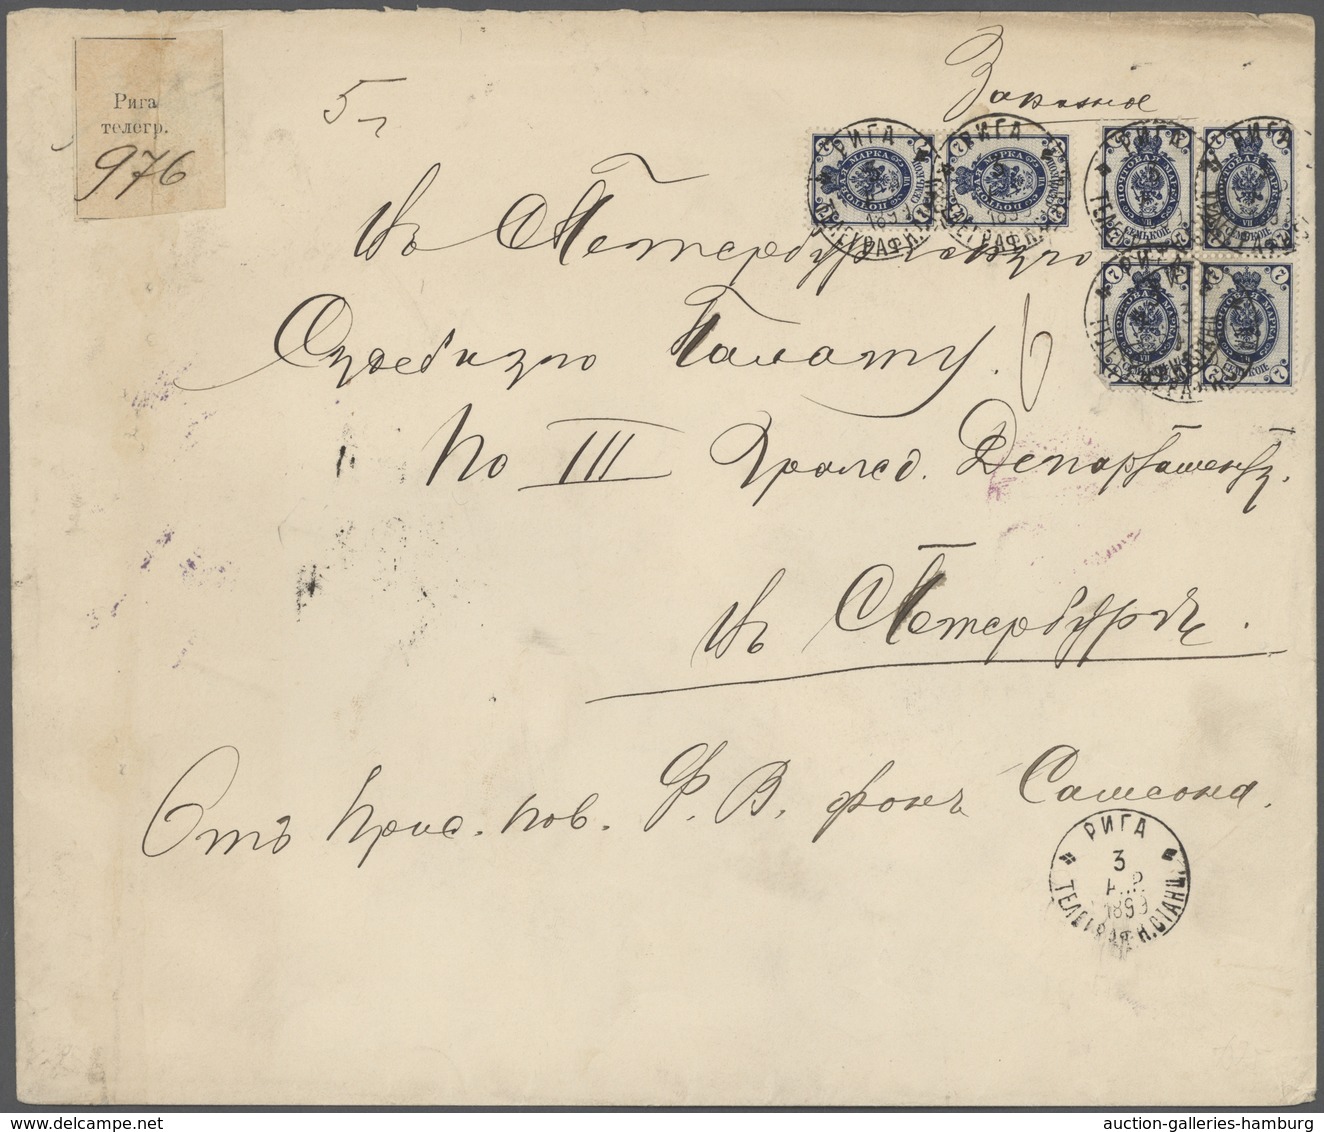 Рига
телегр.
976
5 г
Заказное
въ СПетербургскую
Судебную Палату.
По III Гражд. Департаменту.
въ СПетербургъ.
Отъ Прис. пов. Ф. В. фонъ Самсона.
РИГА
3
АПР
1899
ТЕЛЕГРАФН. СТАНЦ.
auction-galleries-hamburg